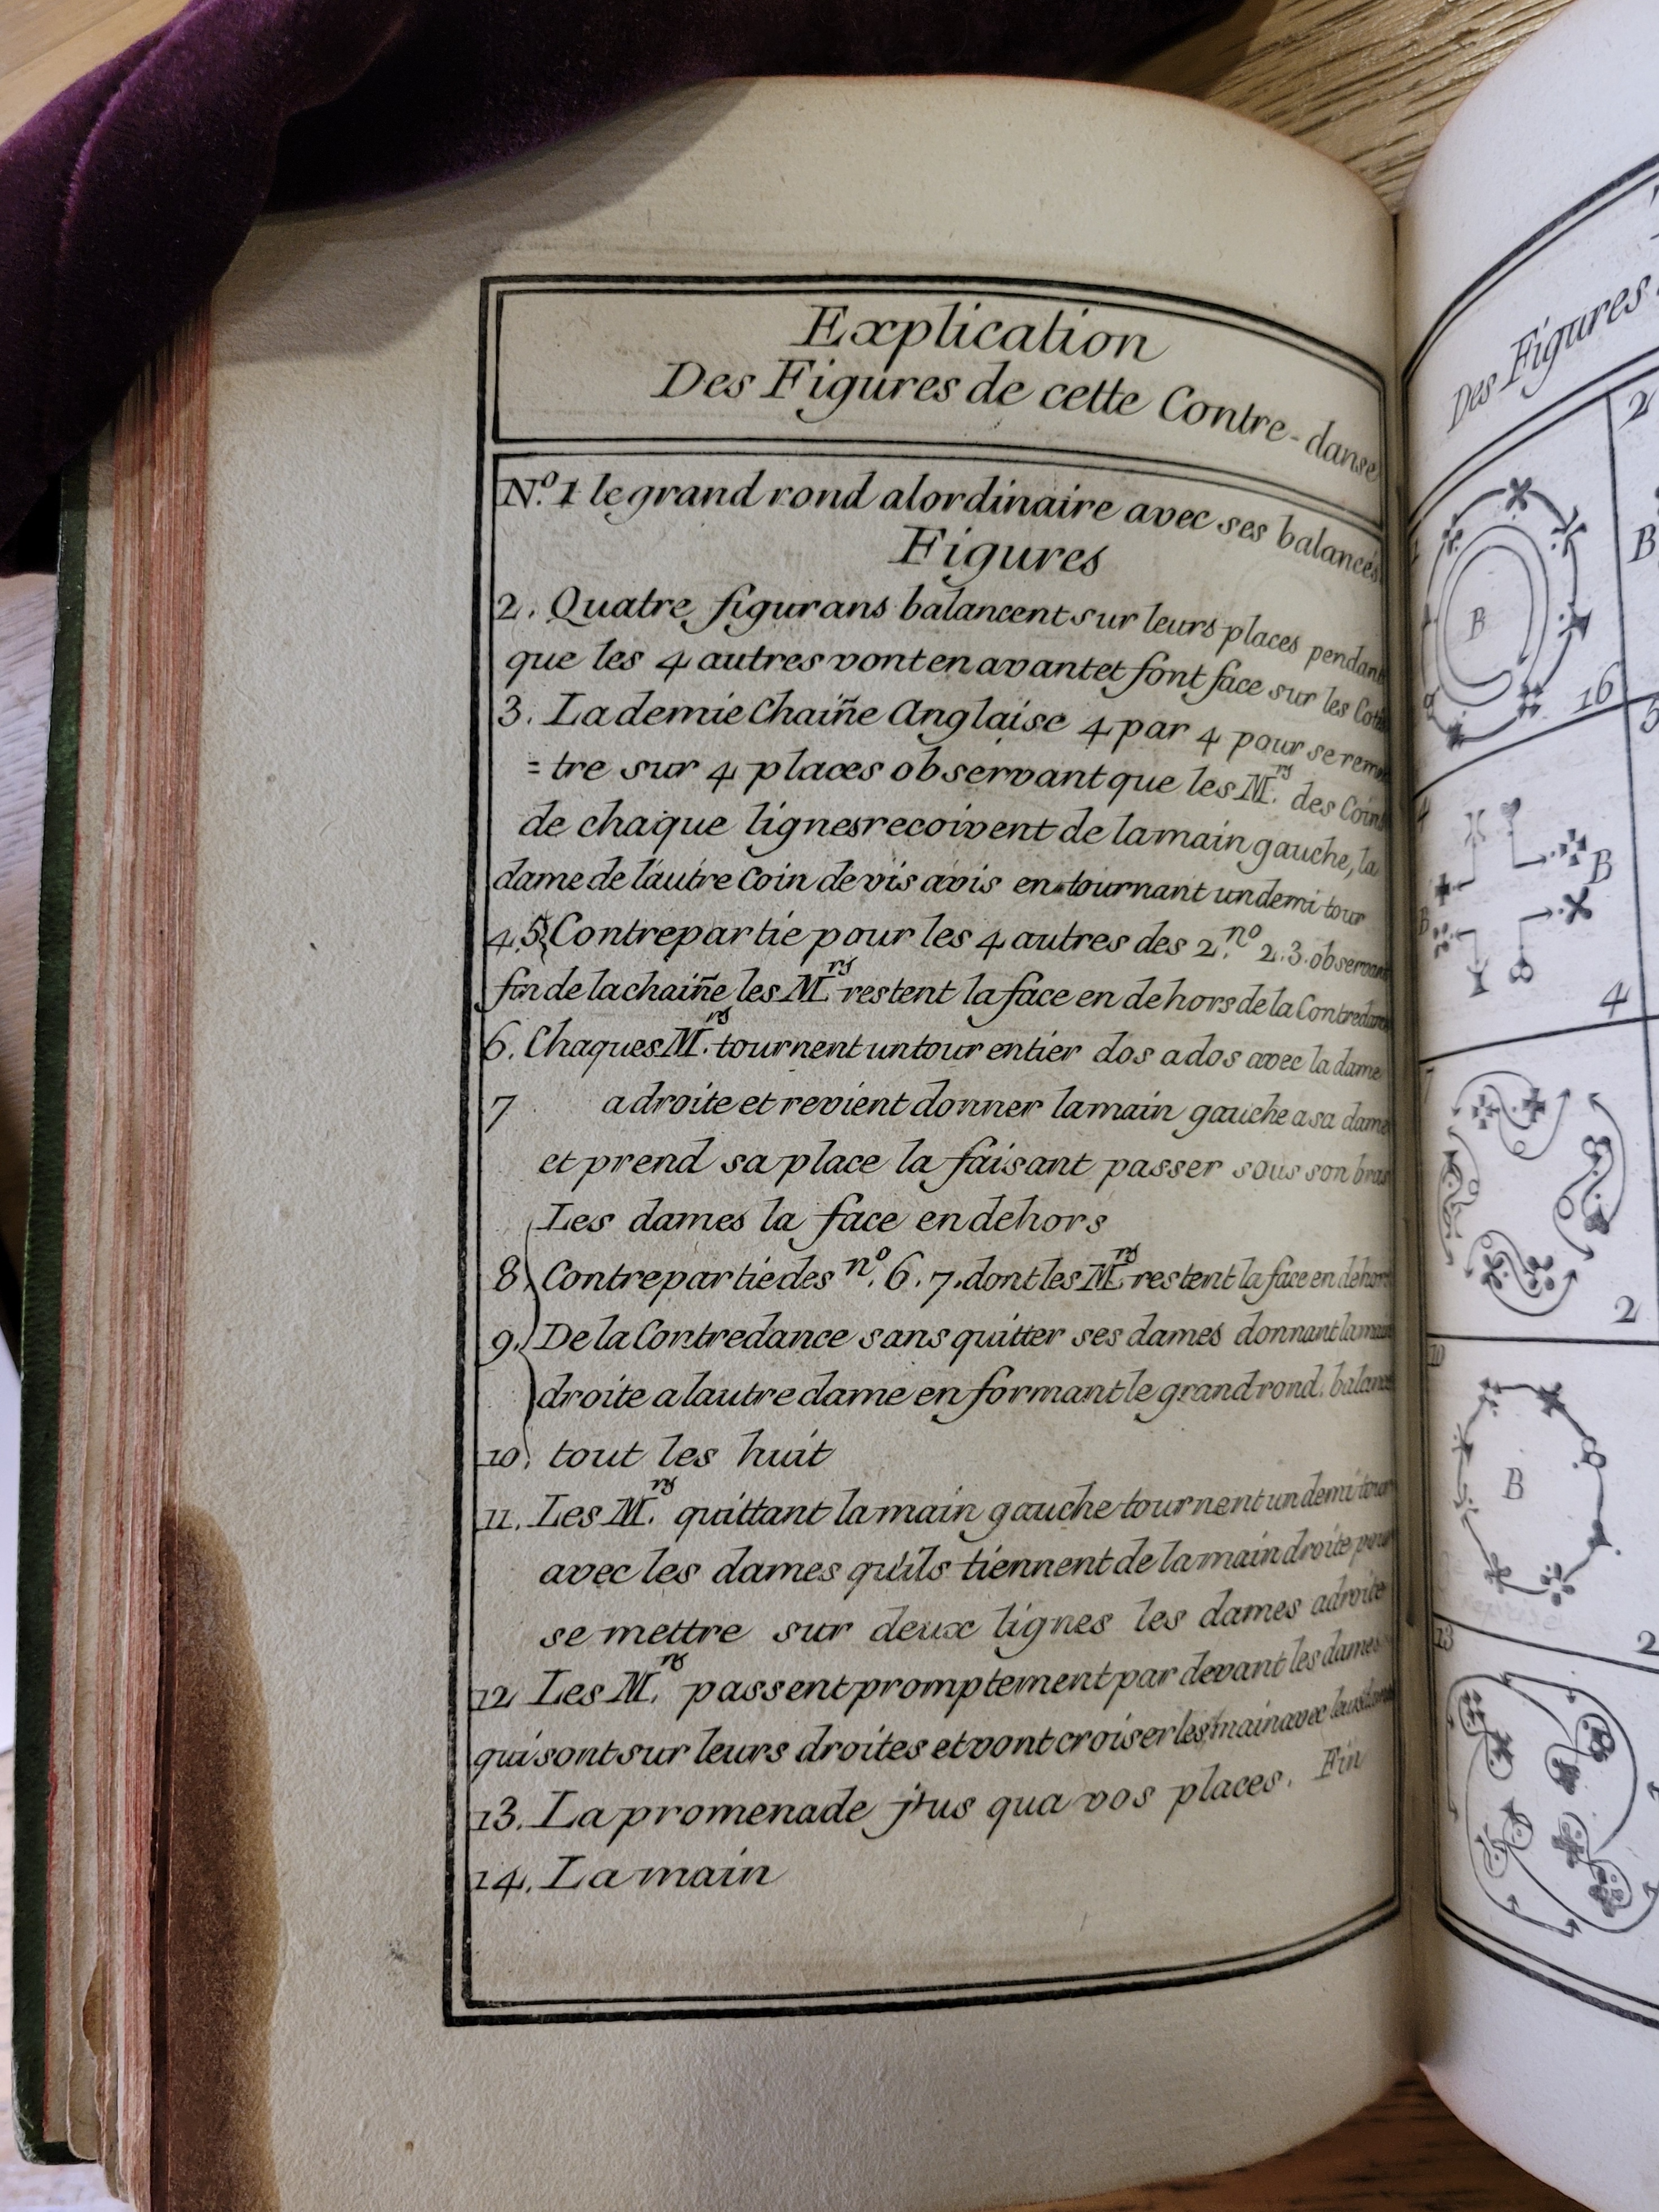 Explication
Des Figures de cette Contre-danse
N.º 1 le grand rond alordinaire avec ses balancés
Figures
2. Quatre figurans balancent sur leurs places pendant
que les 4 autres vont en avant et font face sur les
3. La demie Chaiñe Anglaise 4 par 4 pour se
=tre sur 4 places observant que les M.rs des Coins
de chaque lignes recoivent de la main gauche, la
dame de lautre Coin de vis avis en tournant un demi tour
4.5 Contrepartie pour les 4 autres des 2.nº 2.3. observant
fin de la chaiñe les M.rs restent la face en dehors de la Contredanse
6. Chaques M.rs tournent un tour entier dos a dos avec la dame
7 a droite et revient donner la main gauche a sa dame
et prend sa place la faisant passer sous son bras
Les dames la face en dehors
8 Contrepartie des nº. 6. 7. dont les M.rs restent la face en dehors
9. De la Contredance sans quitter ses dames donnant la main
droite a lautre dame en formant le grand rond.
10. tout les huit
11. Les M.rs quittant la main gauche tournent un demi tour
avec les dames qu'ils tiennent de la main droite pour
se mettre sur deux lignes les dames adroite
12 Les M.rs passent promptement par devant les dames
qui sont sur leurs droites et vont croiser les main avec
13. La promenade jus qua vos places. Fin
14. La main
Des Figures
2
B
16
B
B
4
7
2
10
B
2
13